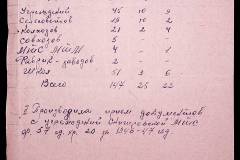 Учреждений 45 10 9
Сельсоветов 19 10 2
Колхозов 21 2 4
Совхозов 5 - -
МТС 4 - 1
Фабрик-заводов 2 - -
Школ 51 3 6
Всего 147 25 22
Производила прием документов
с учреждений МТС
ф. 57 ед. хр. 20 за 1946-47 год.